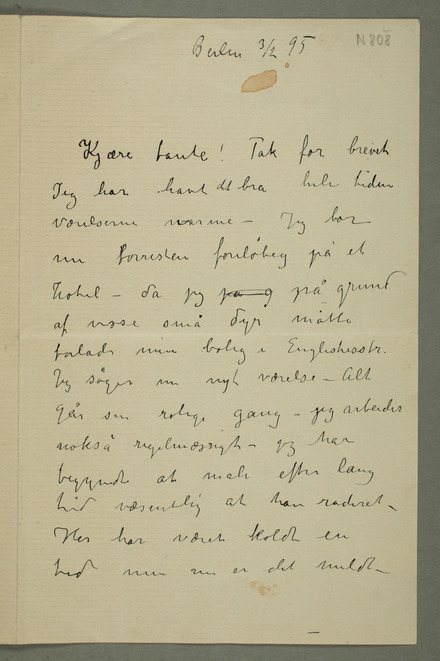 N 808
Berlin 3/2 95
Kjære tante! Tak for brevet
Jeg har havt dt bra hele tiden
værelserne varme – Jeg bor
nu forresten foreløbeg på et
hotel – da jeg på grund
af visse små dyr måtte
forlade min bolig i Englischestr.
Jeg søger nu nyt værelse – Alt
går sin rolige gang – jeg arbeider
nokså regelmæssigt – jeg har
begyndt at male efter lang
tid væsentlig at han raderet –
Her har været koldt en
tid men nu er det mildt –